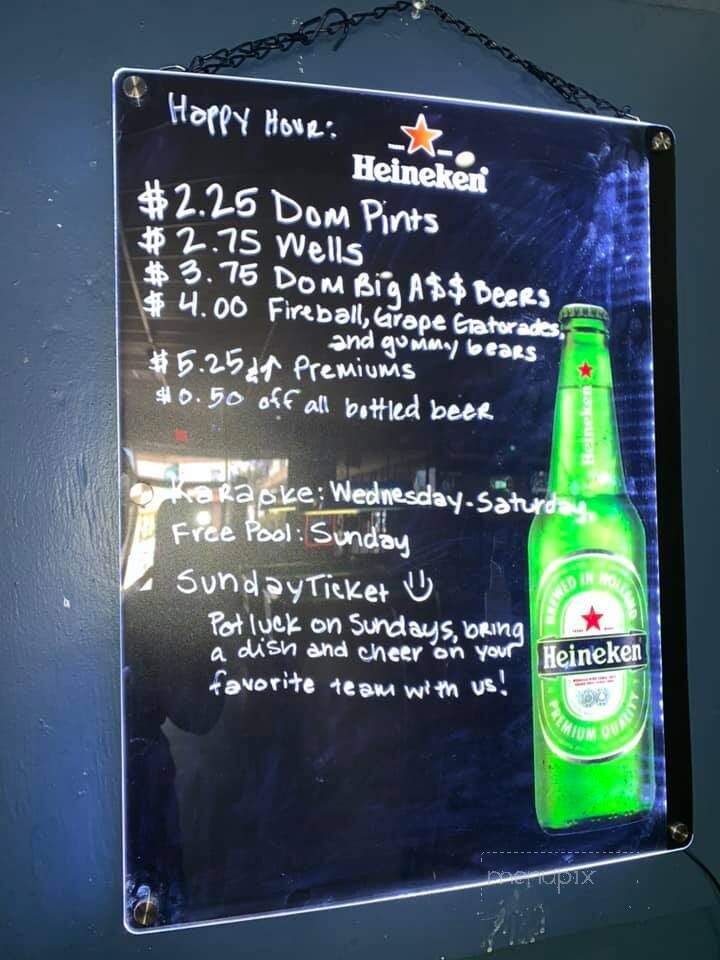 Happy Hour:
Heineken
$2.25 Dom Pints
$2.75 Wells
$3.75 Dom Big A$$ Beers
$4.00 Fireball, Grape Gatorades,
and gummy bears
$5.25 ↓↑ Premiums
$0.50 off all bottled beer
Karaoke: Wednesday-Saturday
Free Pool: Sunday
Sunday Ticket
Potluck on Sundays, bring
a dish and cheer on your
favorite team with us!
Heineken
BREWED IN HOLLAND
Heineken
PREMIUM QUALITY
menupix